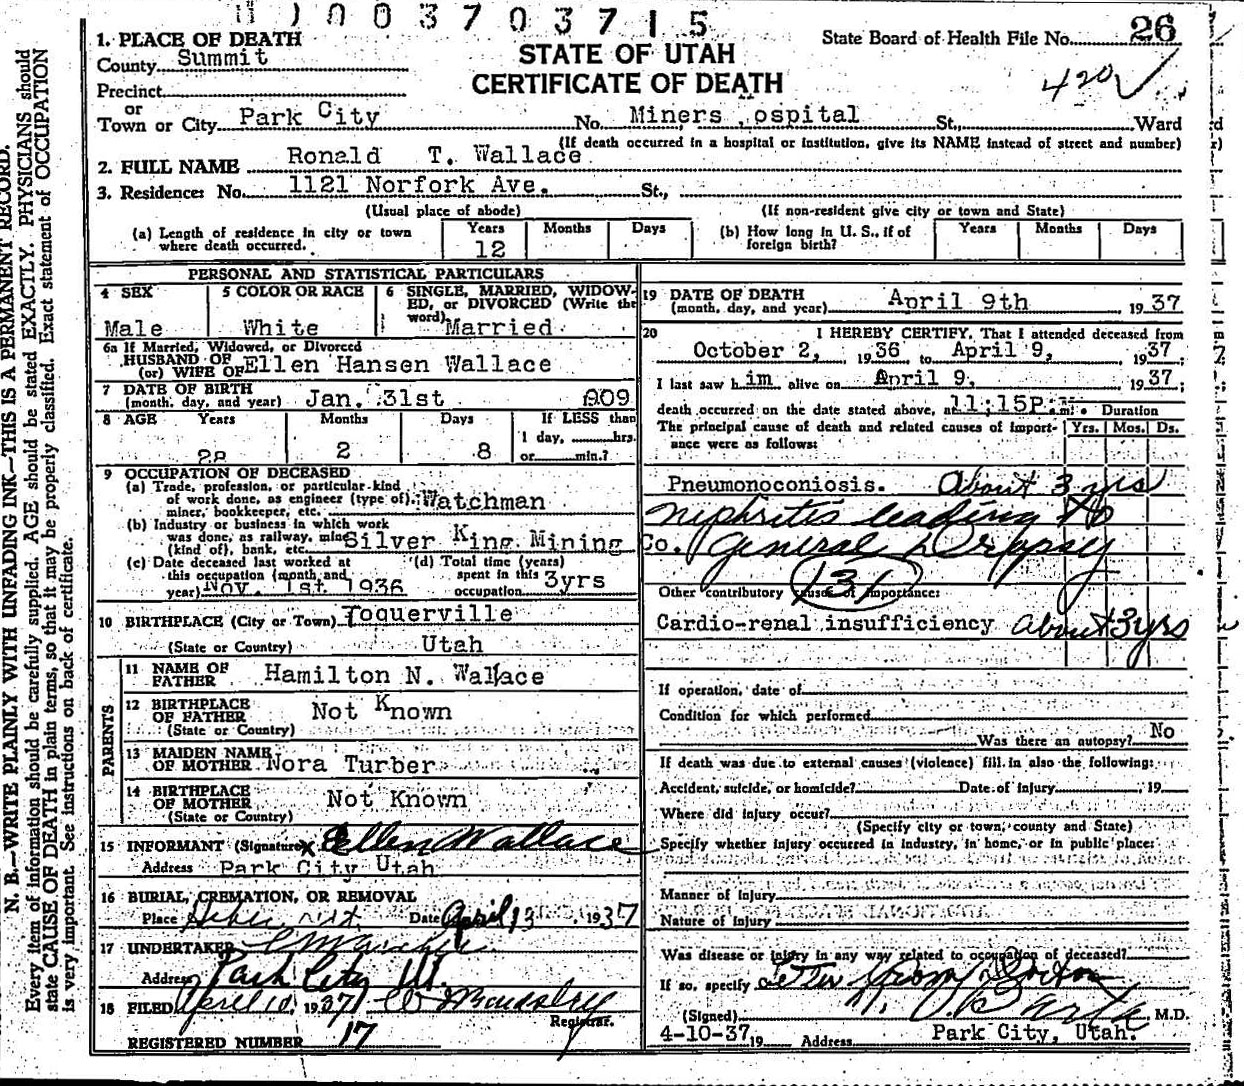 1003703715
26
1. PLACE OF DEATH
STATE OF UTAH
State Board of Health File No.
County Summit
CERTIFICATE OF DEATH
420
Precinct
or
Town or City Park City No. Miners ospital St., Ward
(If death occurred in a hospital or institution, give its NAME instead of street and number)
2. FULL NAME Ronald T. Wallace
3. Residence: No. 1121 Norfork Ave. St.,
(Usual place of abode) (If non-resident give city or town and State)
(a) Length of residence in city or town where death occurred. Years 12 Months Days
(b) How long in U. S., if of foreign birth? Years Months Days
PERSONAL AND STATISTICAL PARTICULARS
4 SEX 5 COLOR OR RACE 6 SINGLE, MARRIED, WIDOW-
ED, or DIVORCED (Write the
word)
Male White Married
6a If Married, Widowed, or Divorced
HUSBAND OF
(or) WIFE OF Ellen Hansen Wallace
7 DATE OF BIRTH
(month, day, and year) Jan. 31st 909
8 AGE Years Months Days If LESS than
1 day, hrs.
28 2 8 or min.?
9 OCCUPATION OF DECEASED
(a) Trade, profession, or particular kind
of work done, as engineer (type of),
miner, bookkeeper, etc. Watchman
(b) Industry or business in which work
was done, as railway, mine
(kind of), bank, etc. Silver King Mining Co.
(c) Date deceased last worked at
this occupation (month and
year) Nov. 1st 1936
(d) Total time (years)
spent in this
occupation 3yrs
10 BIRTHPLACE (City or Town) Toquerville
(State or Country) Utah
PARENTS
11 NAME OF
FATHER Hamilton N. Wallace
12 BIRTHPLACE
OF FATHER Not Known
(State or Country)
13 MAIDEN NAME
OF MOTHER Nora Turber
14 BIRTHPLACE
OF MOTHER Not Known
(State or Country)
15 INFORMANT (Signature) X Ellen Wallace
Address Park City Utah
16 BURIAL, CREMATION, OR REMOVAL
Place Heber Date April 13 1937
17 UNDERTAKER
Address Park City Ut.
18 FILED April 10, 1937
Registrar.
REGISTERED NUMBER 17
19 DATE OF DEATH
(month, day, and year) April 9th 1937
20 I HEREBY CERTIFY, That I attended deceased from
October 2, 1936 to April 9, 1937;
I last saw him alive on April 9, 1937;
death occurred on the date stated above, at 11;15P.m. Duration
The principal cause of death and related causes of import-
ance were as follows: Yrs. Mos. Ds.
Pneumonoconiosis. About 3 yrs
Nephritis leading to
general Dropsy
131
Other contributory causes of importance:
Cardio-renal insufficiency about 3yrs
If operation, date of
Condition for which performed
Was there an autopsy? No
If death was due to external causes (violence) fill in also the following:
Accident, suicide, or homicide? Date of injury 19
Where did injury occur?
(Specify city or town, county and State)
Specify whether injury occurred in industry, in home, or in public place:
Manner of injury
Nature of injury
Was disease or injury in any way related to occupation of deceased?
If so, specify
(Signed) M.D.
4-10-37 19 Address Park City, Utah.
N. B.—WRITE PLAINLY WITH UNFADING INK—THIS IS A PERMANENT RECORD.
Every item of information should be carefully supplied. AGE should be stated EXACTLY. PHYSICIANS should
state CAUSE OF DEATH in plain terms, so that it may be properly classified. Exact statement of OCCUPATION
is very important. See instructions on back of certificate.